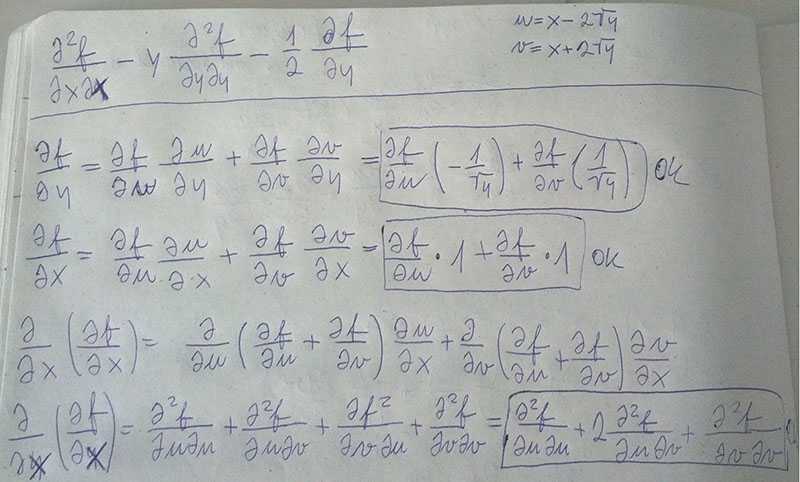 ∂²f/∂x∂x − y ∂²f/∂y∂y − 1/2 ∂f/∂y
u = x − 2√y
v = x + 2√y
∂f/∂y = ∂f/∂u ∂u/∂y + ∂f/∂v ∂v/∂y = ∂f/∂u (−1/√y) + ∂f/∂v (1/√y) OK
∂f/∂x = ∂f/∂u ∂u/∂x + ∂f/∂v ∂v/∂x = ∂f/∂u · 1 + ∂f/∂v · 1 OK
∂/∂x (∂f/∂x) = ∂/∂u (∂f/∂u + ∂f/∂v) ∂u/∂x + ∂/∂v (∂f/∂u + ∂f/∂v) ∂v/∂x
∂/∂x (∂f/∂x) = ∂²f/∂u∂u + ∂²f/∂u∂v + ∂f²/∂v∂u + ∂²f/∂v∂v = ∂²f/∂u∂u + 2 ∂²f/∂u∂v + ∂²f/∂v∂v